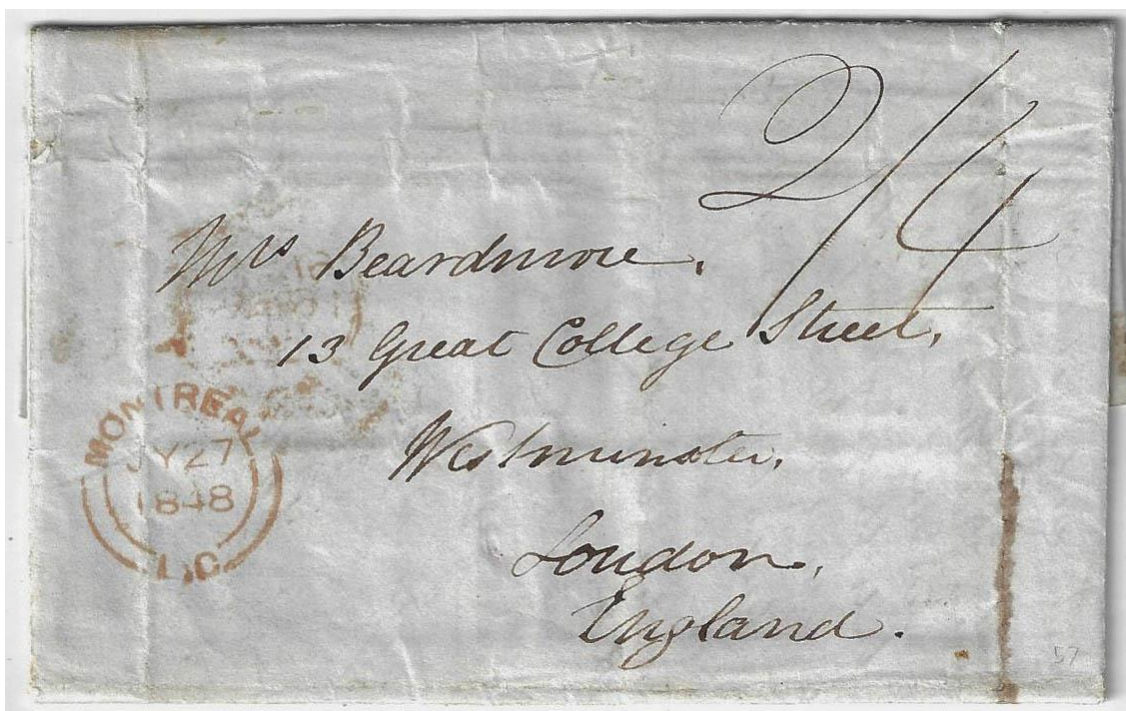 2/4
Mrs Beardmore.
13 Great College Street,
Westminster,
London,
England.
MONTREAL
JY 27
1848
L.C
57